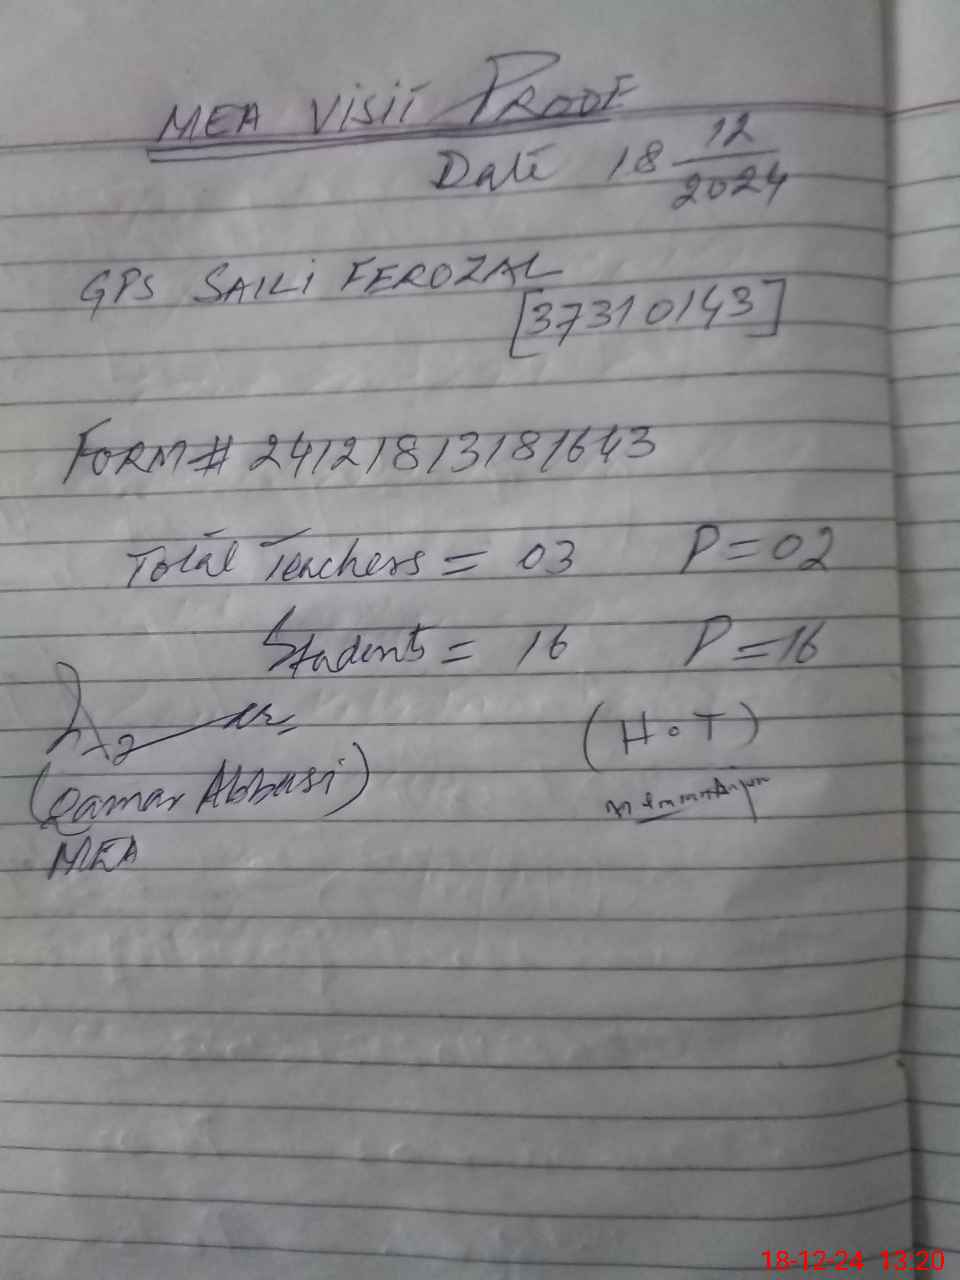 MEA VISIT PROOF
Date 18 12/2024
GPS SAILI FEROZAL
[37310143]
FORM# 24121813181643
Total Teachers = 03 P = 02
Students = 16 P = 16
(H.T)
(Qamar Abbasi)
MEA
18-12-24 13:20